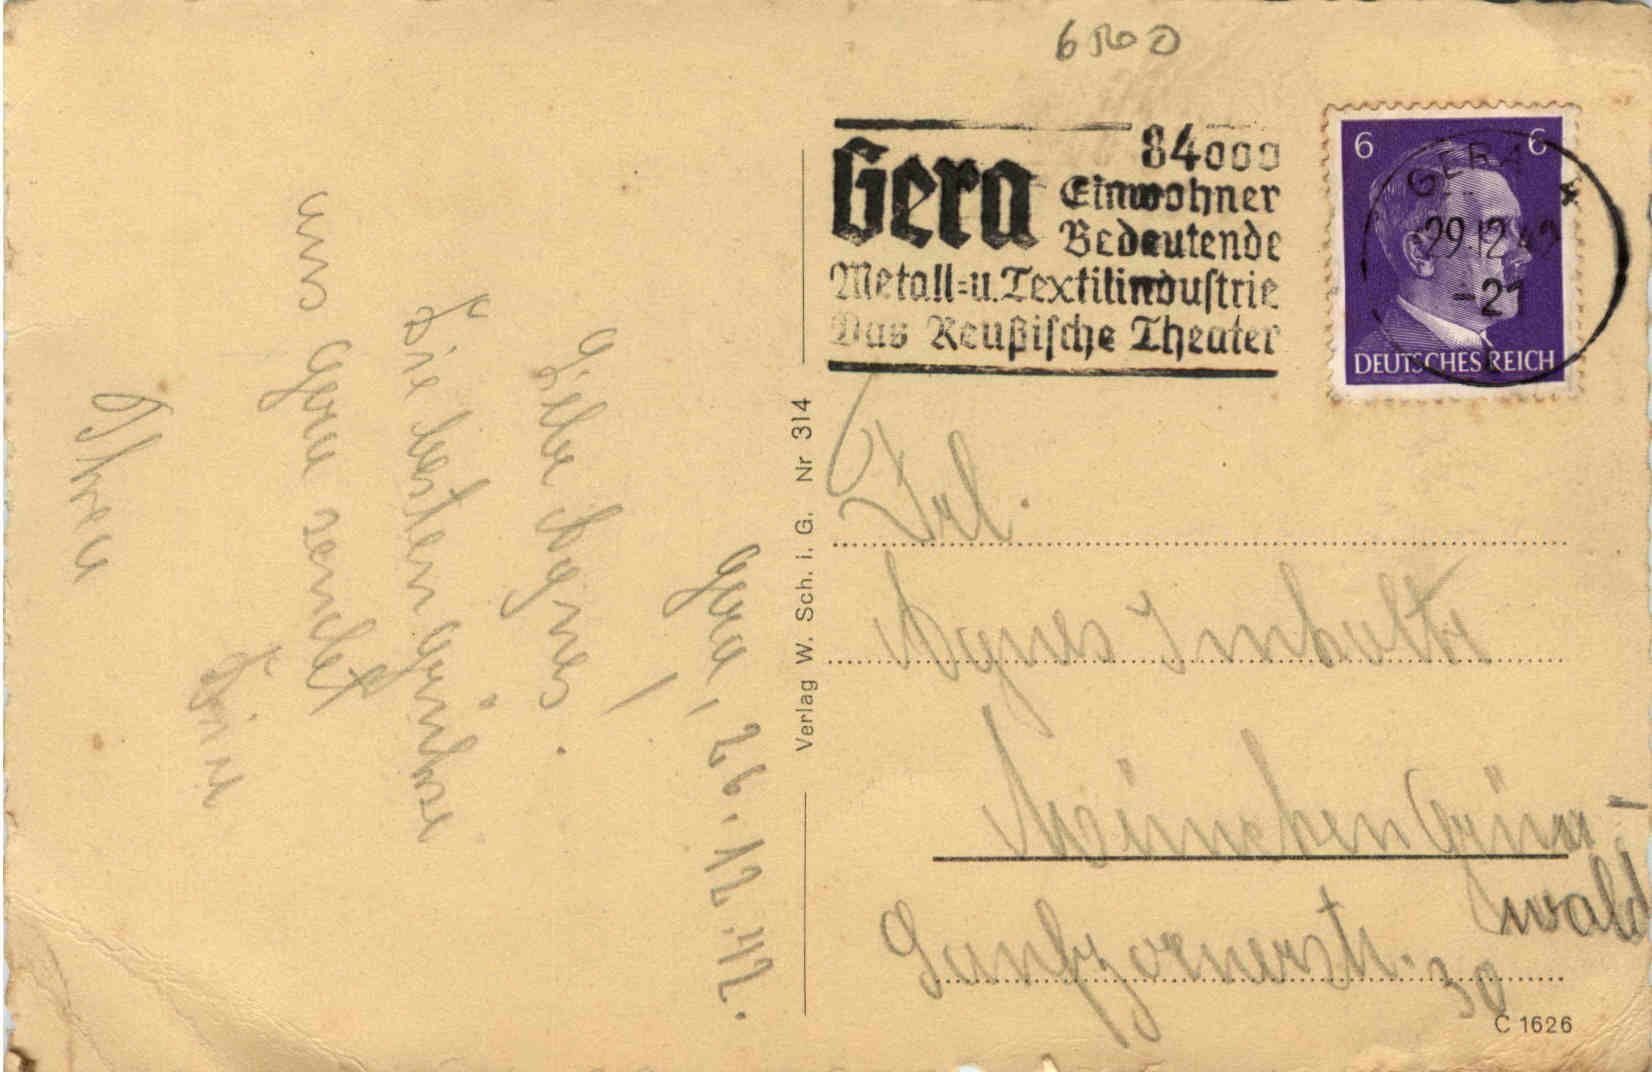 6
Gera
84000
Einwohner
Bedeutende
Metall=u. Textilindustrie
Das Reußische Theater
6 6
DEUTSCHES REICH
GERA
29.12.42
-21
Gera, 26.12.42.
Liebe Agnes!
Die besten Grüße
aus Gera sendet
Ihnen
Verlag W. Sch. i. G. Nr 314
Frl.
Agnes
München Grün-
wald
30
C 1626